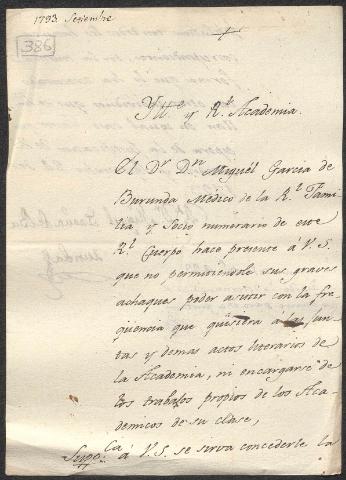 1793 Setiembre
386
Ytt.e y R.l Academia.
El D.r D.n Miguél Garcia de
Burunda Médico de la R.l Fami
lia, y Socio numerario de este
R.l Cuerpo hace presente á V. S.
que no permitiendole sus graves
achaques poder acistir con la fre
qüencia que quisiera á las Jun
tas y demas actos literarios de
la Academia, ni encargarse de
los trabajos propios de los Aca-
demicos de su clase,
Supp.ca á V. S. se sirva concederle la